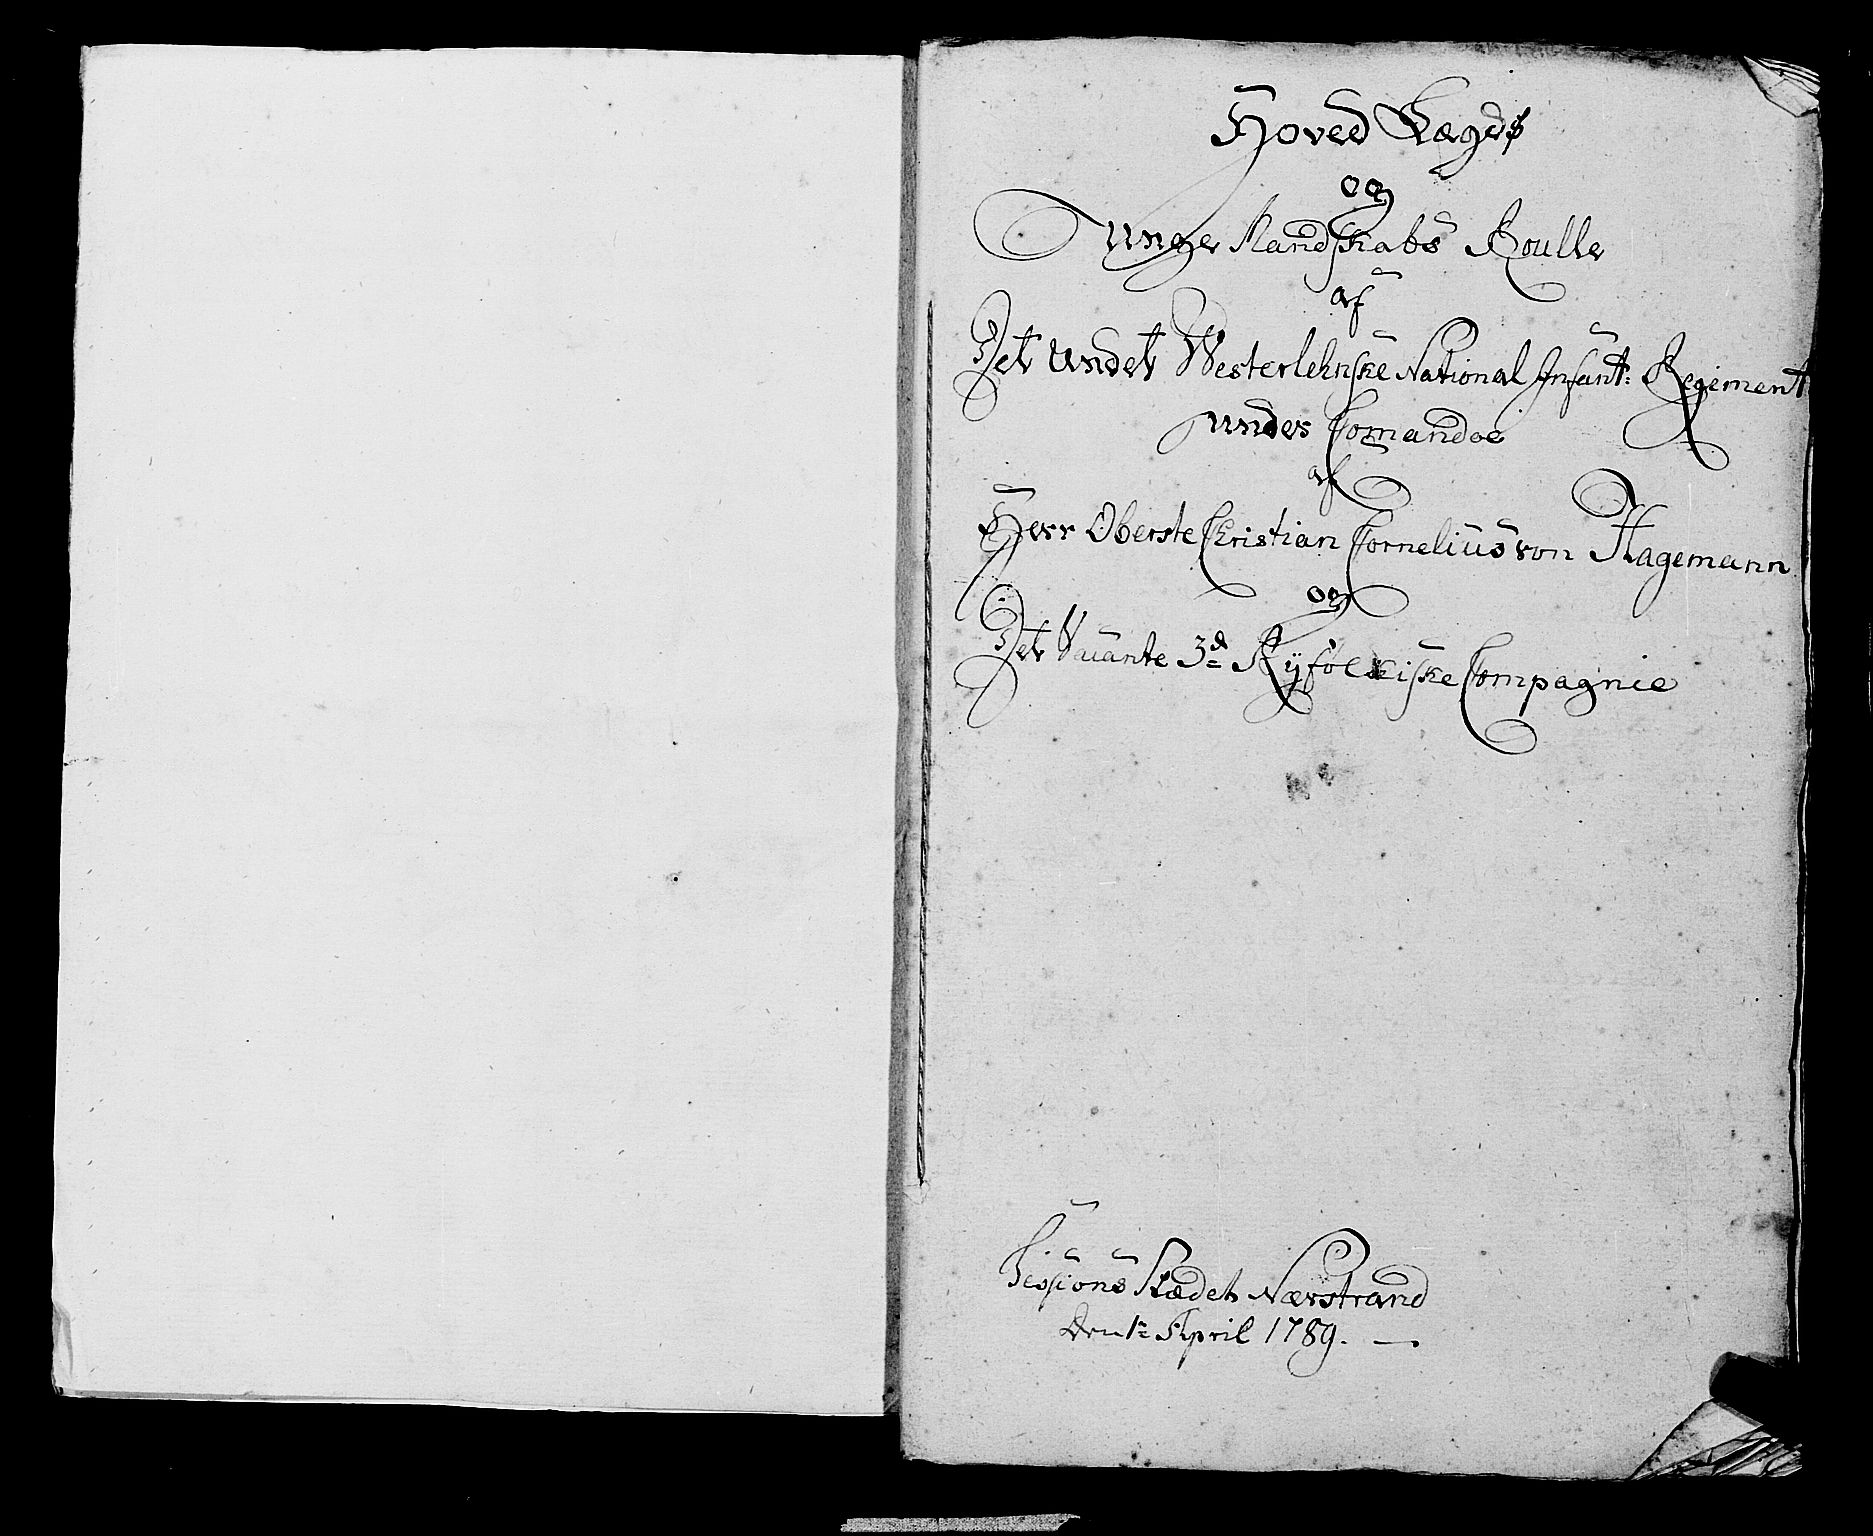 Hoved Lægds
og
Unge Mandskabs Roulle
af
Det Andet Westerlehnske National Infant: Regiment
under Comandoe
af
Herr Oberste Christian Cornelius von Hagemann
og
Det Vacante 3d Ryfolkiske Compagnie
Sessions Stædet Nærstrand
Den 1te April 1789. —